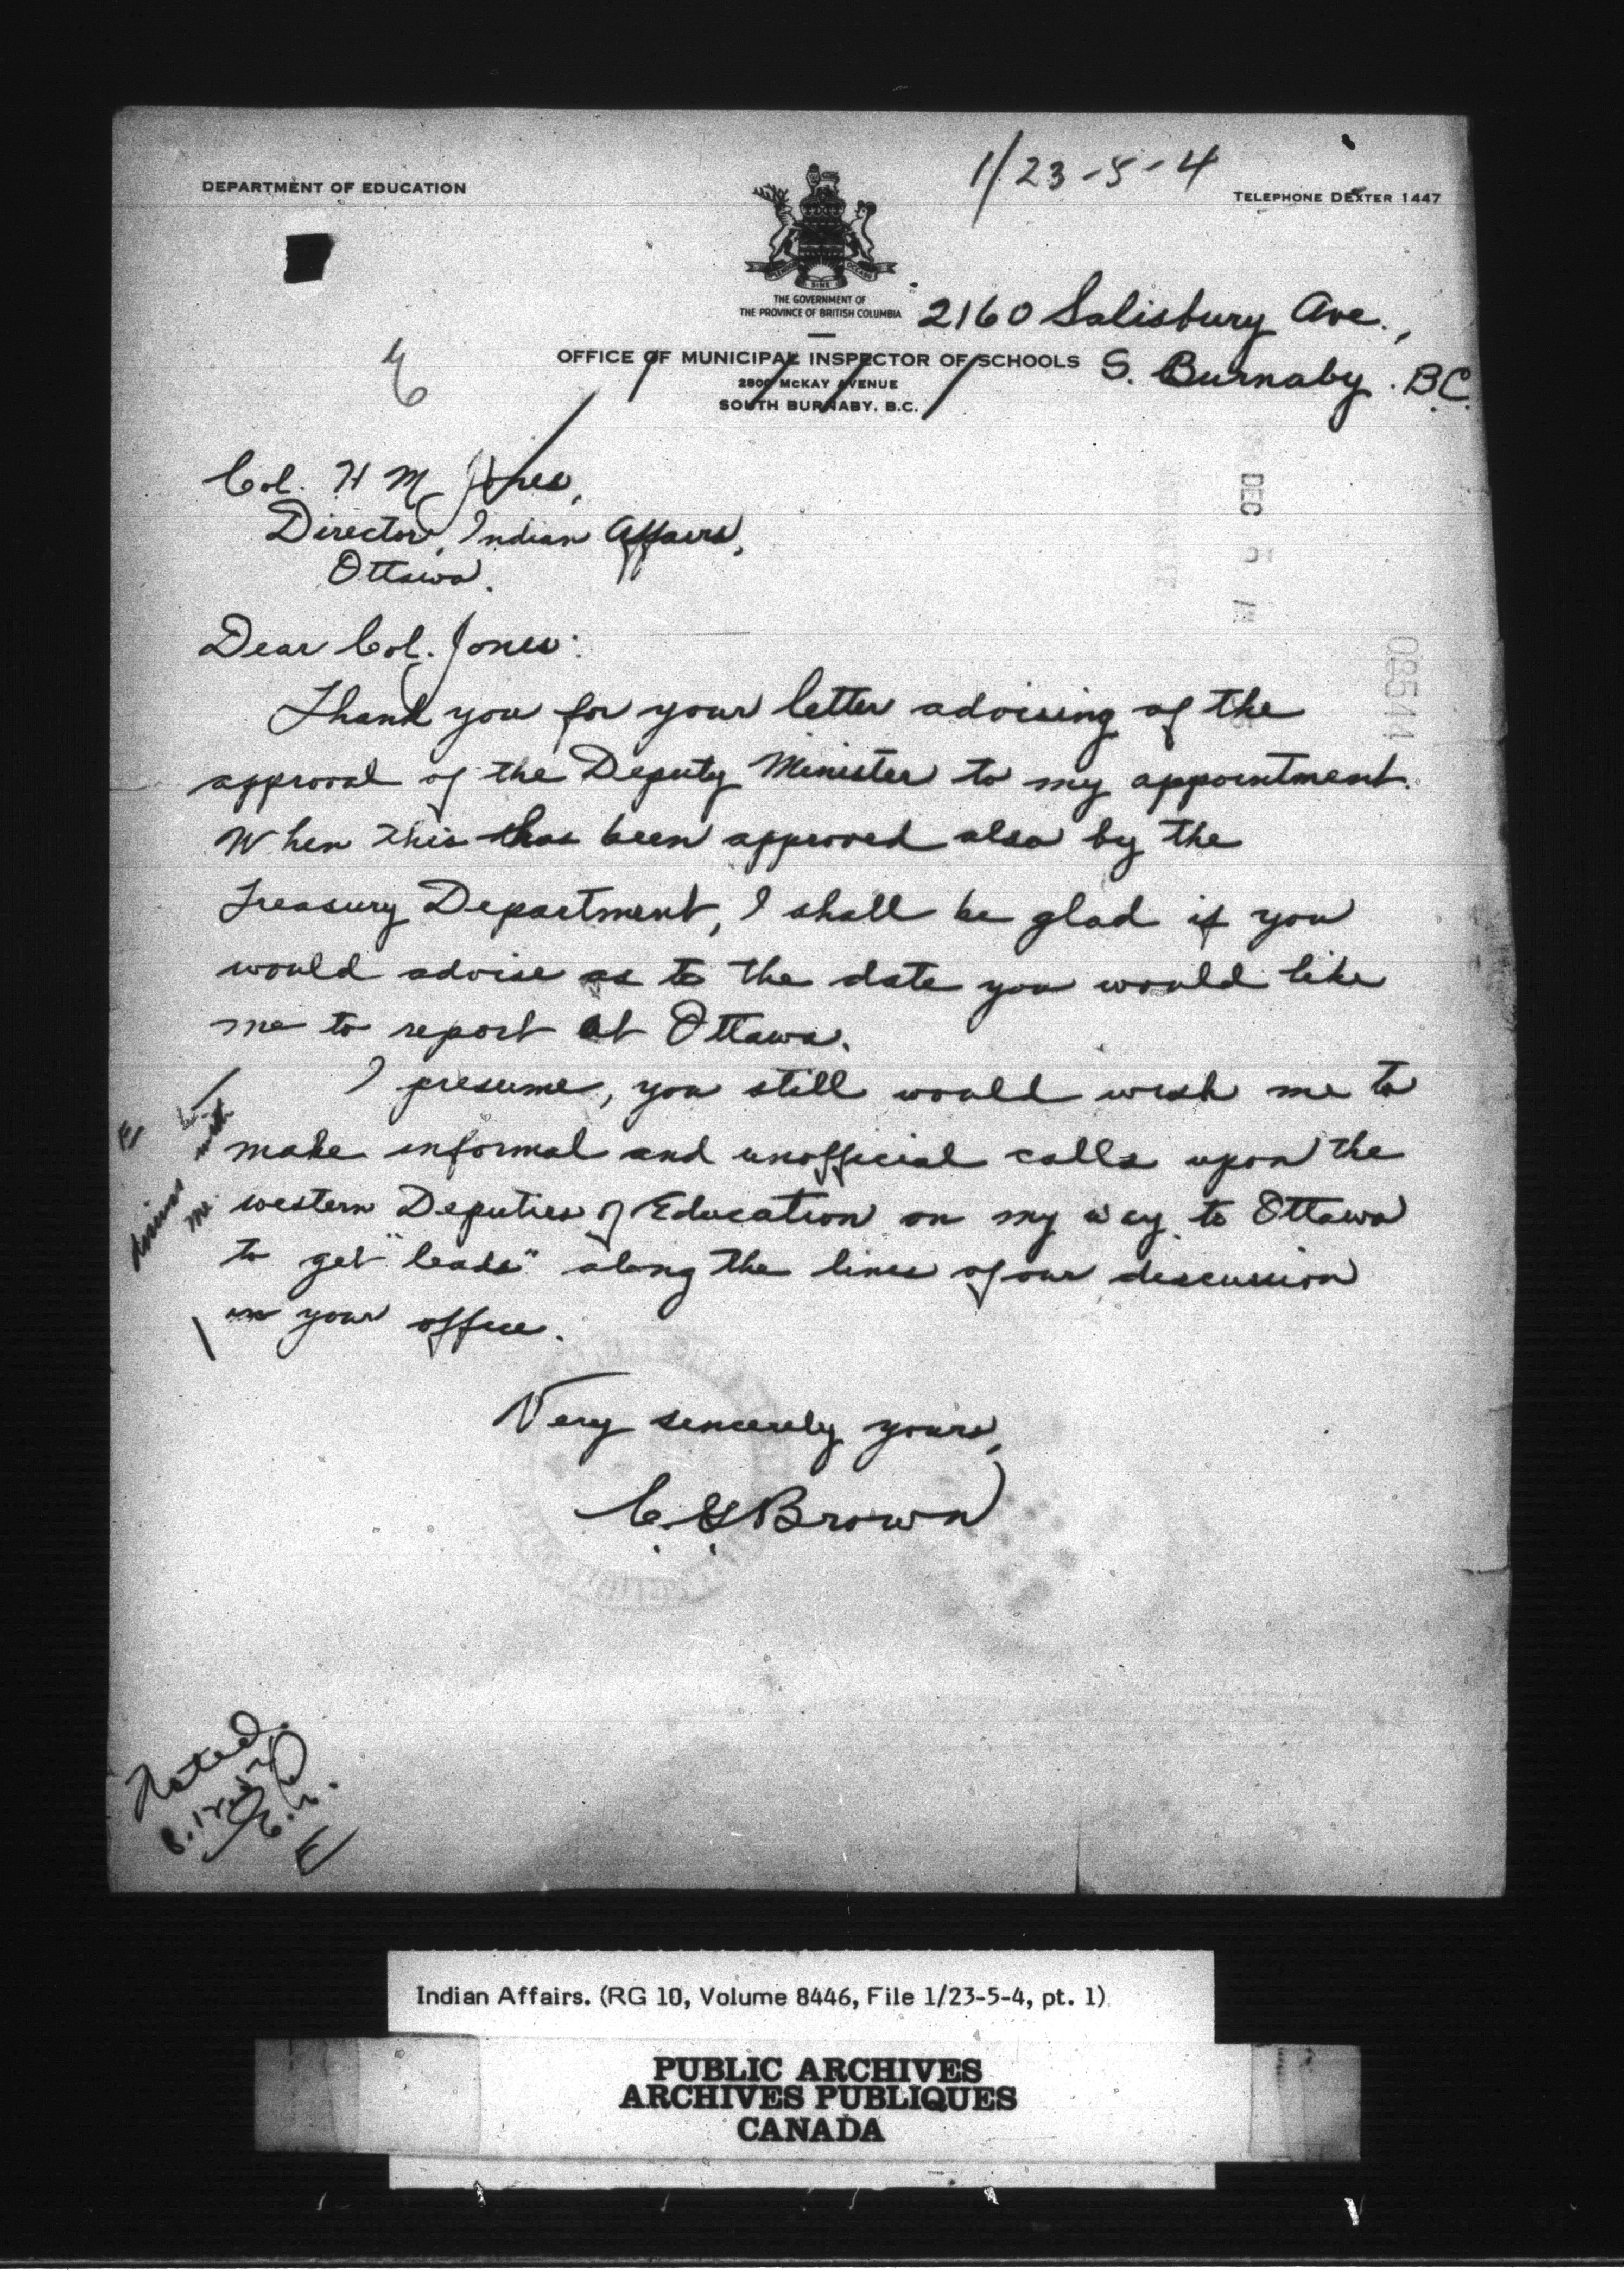 1/23-5-4
DEPARTMENT OF EDUCATION
TELEPHONE DEXTER 1447
THE GOVERNMENT OF
THE PROVINCE OF BRITISH COLUMBIA
2160 Salisbury Ave.,
OFFICE OF MUNICIPAL INSPECTOR OF SCHOOLS
S. Burnaby. B.C.
2800 McKAY AVENUE
SOUTH BURNABY, B.C.
Col. H M Jones,
Director, Indian Affairs,
Ottawa.
DEC
08544
Dear Col. Jones:
Thank you for your letter advising of the
approval of the Deputy Minister to my appointment.
When this has been approved also by the
Treasury Department, I shall be glad if you
would advise as to the date you would like
me to report at Ottawa.
I presume, you still would wish me to
make informal and unofficial calls upon the
western Deputies of Education on my way to Ottawa
to get "leads" along the lines of our discussion
in your office.
E
discuss with
me.
Very sincerely yours,
C. G. Brown
Noted.
E
Indian Affairs. (RG 10, Volume 8446, File 1/23-5-4, pt. 1)
PUBLIC ARCHIVES
ARCHIVES PUBLIQUES
CANADA